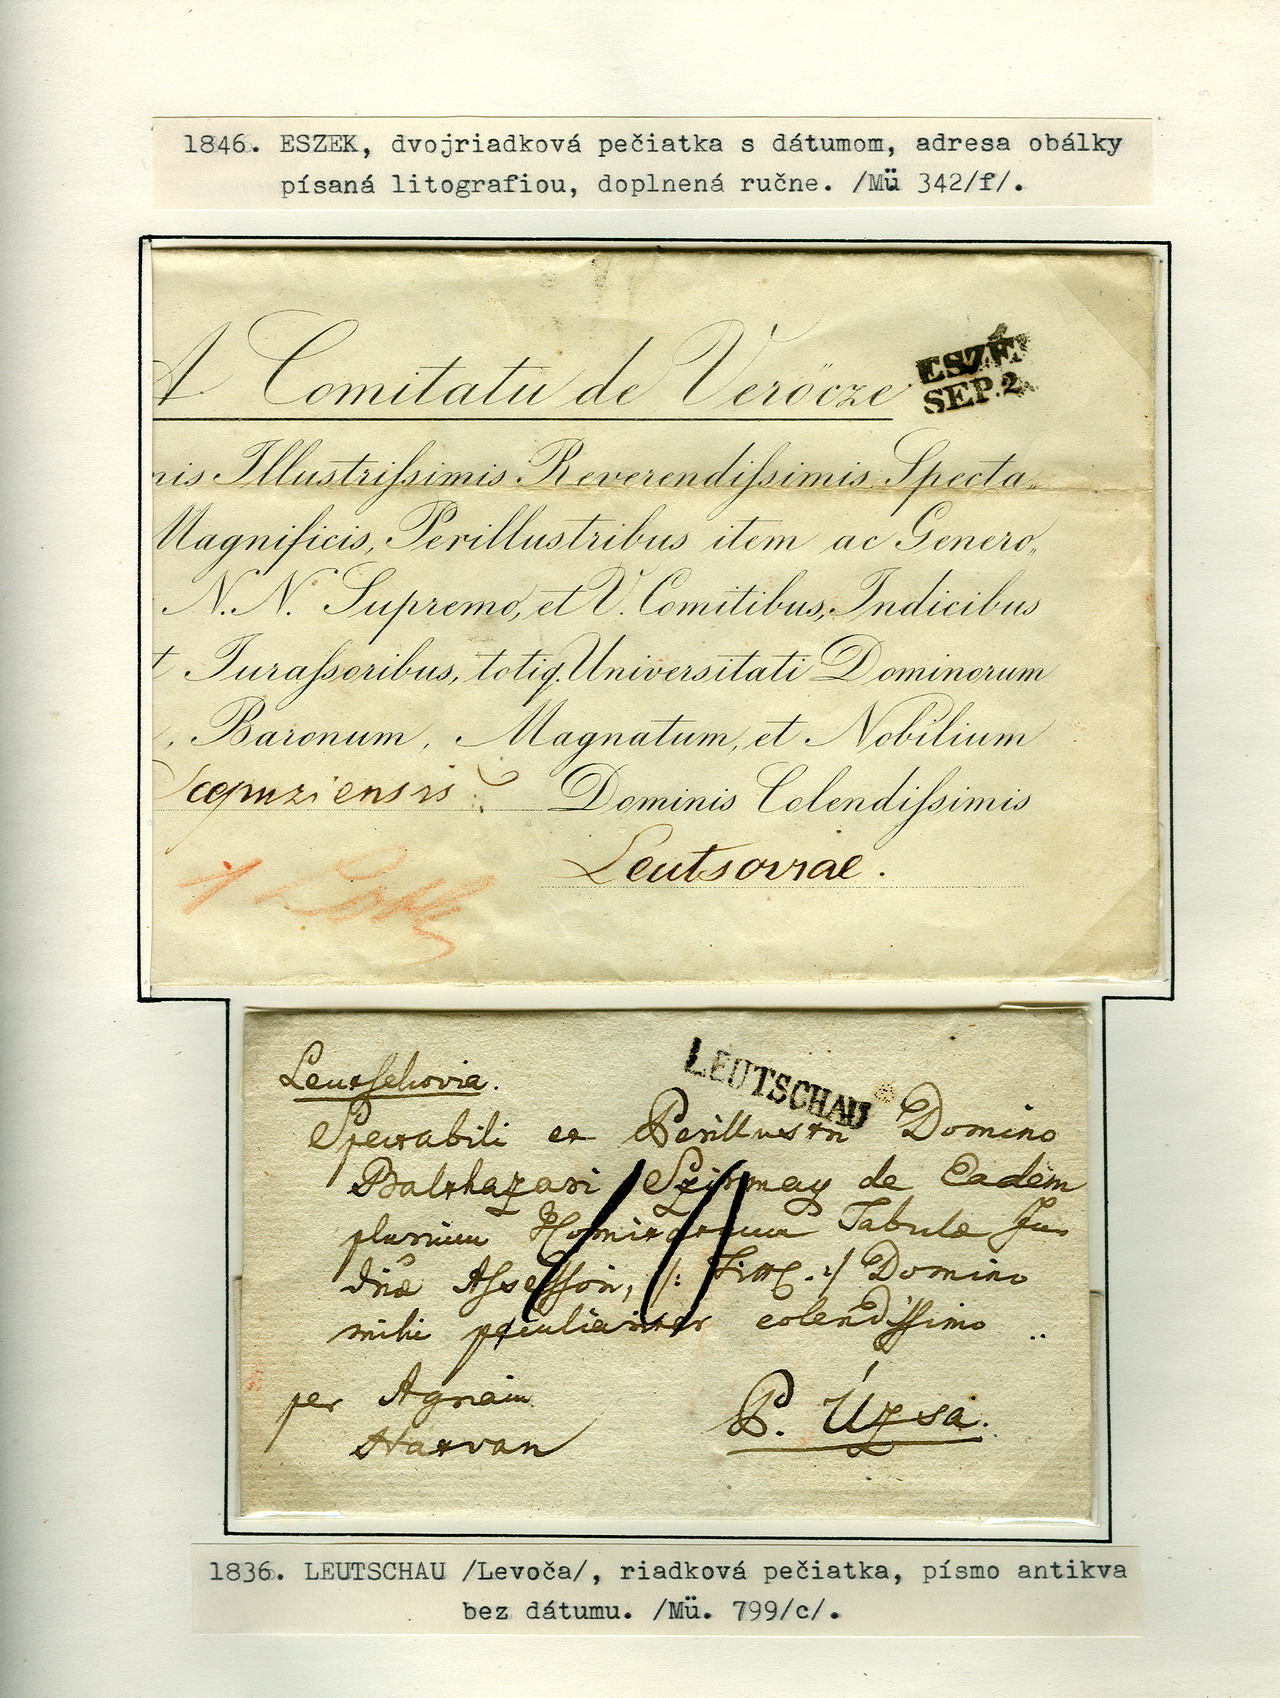 1846. ESZEK, dvojriadková pečiatka s dátumom, adresa obálky
písaná litografiou, doplnená ručne. /Mü 342/f/.
A Comitatu de Veröcze
ESZÉ
SEP. 2
nis Illustriſsimis Reverendiſsimis Specta„
Magnificis, Perillustribus item ac Genero„
N. N. Supremo, et V. Comitibus, Iudicibus
t Juraſsoribus, totiq. Universitati Dominorum
, Baronum, Magnatum, et Nobilium
Scepuziensis Dominis Colendiſsimis
Leutsoviae.
Leutschovia.
LEUTSCHAU
Spectabili et Perillustri Domino
Balthazari Szirmay de Eadem
plurium Tabulæ Ju
Aſseſsori, Domino
mihi peculiariter colendiſsimo
per Agriam
Hatvan
P. Úzsa.
1836. LEUTSCHAU /Levoča/, riadková pečiatka, písmo antikva
bez dátumu. /Mü. 799/c/.